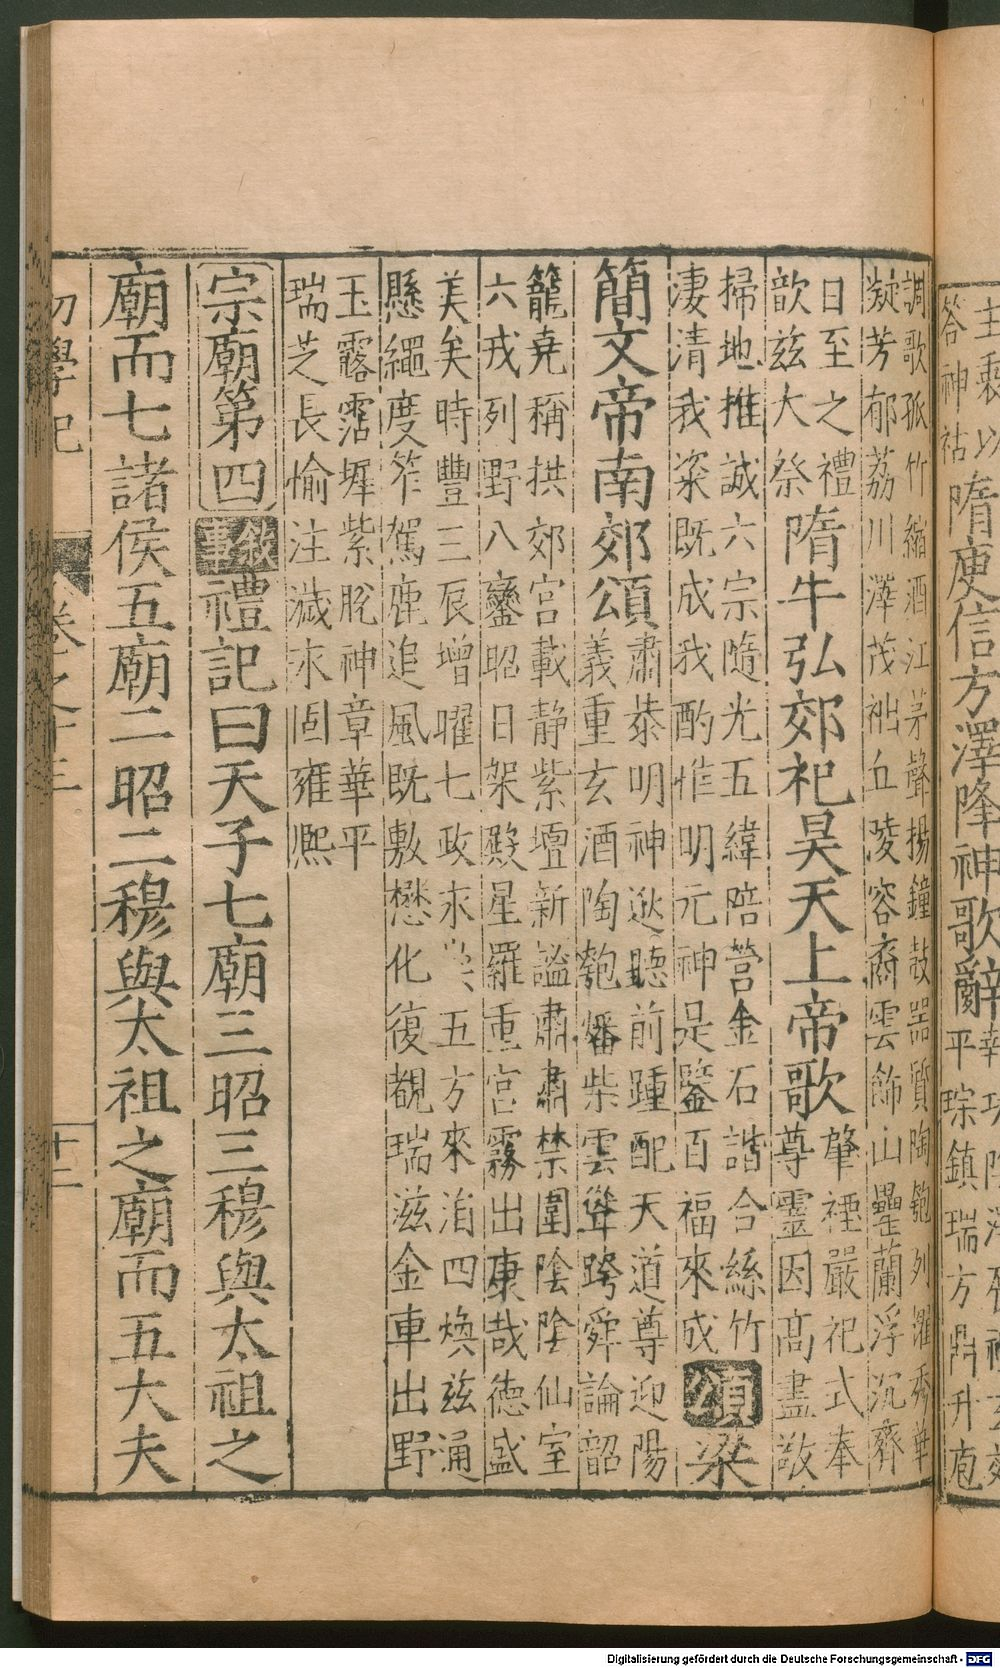 圭乘以
答神祜
隋庾信方澤降神歌辭
平琮鎮瑞方鼎升庖
調歌孤竹縮酒江茅聲揚鐘鼓器質陶匏列燿秀華
凝芳郁荔川澤茂祉丘陵容裔雲飾山罍蘭浮沉齊
日至之禮
歆兹大祭
隋牛弘郊祀昊天上帝歌
肇禋嚴祀式奉
尊靈因高盡敬
掃地推誠六宗隨光五緯陪營金石諧合絲竹
淒清我粢既成我酌惟明元神是鑒百福來成
頌
梁
簡文帝南郊頌
肅恭明神逖聽前踵配天道尊迎陽
義重玄酒陶匏燔柴雲聳跨舜論韶
籠堯稱拱郊宮載靜紫壇新謐肅肅禁圍陰陰仙室
六戎列野八鑾昭日架殿星羅重宮霧出康哉德盛
美矣時豐三辰增曜七政求 五方來洎四煥兹通
懸繩度笮駕鹿追風既敷懋化復觀瑞滋金車出野
玉露霑墀紫脫神章華平
瑞芝長愉注濊求固雍熙
宗廟第四
敘事
禮記曰天子七廟三昭三穆與太祖之
廟而七諸侯五廟二昭二穆與太祖之廟而五大夫
初學記
卷之十三
十二
Digitalisierung gefördert durch die Deutsche Forschungsgemeinschaft - DFG